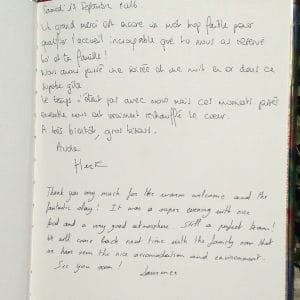 Samedi 27 Septembre
Un grand merci est encore un mot trop faible pour
qualifier l'accueil incroyable que tu nous as réservé
toi et ta famille!
Nous avons passé une soirée et une nuit en or dans ce
superbe gîte.
Le temps n'était pas avec nous mais ces moments passés
ensemble nous ont vraiment réchauffé le coeur.
A très bientôt, gros bisous.
Thank you very much for the warm welcome and the
fantastic stay! It was a super evening with nice
food and a very good atmosphere. Still a perfect team!
We will come back next time with the family now that
we have seen the nice accomodation and environment.
See you soon!
Laurence